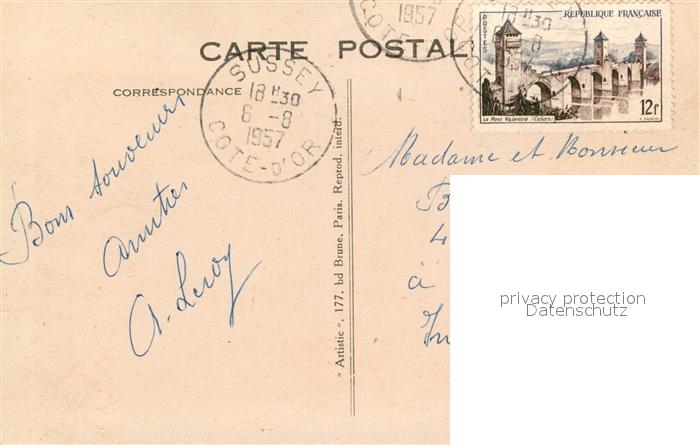 CARTE POSTALE
CORRESPONDANCE
SUSSEY
18H30
6 -8
1957
COTE-D'OR
1957
COTE
18H30
6 -8
RÉPUBLIQUE FRANÇAISE
POSTES
Le Pont Valentré (Cahors)
12F
Bons souvenirs
Amitiés
A. Leroy
"Artistic", 177, bd Brune, Paris. Reprod. interd.
Madame et Monsieur
B
4
à
privacy protection
Datenschutz